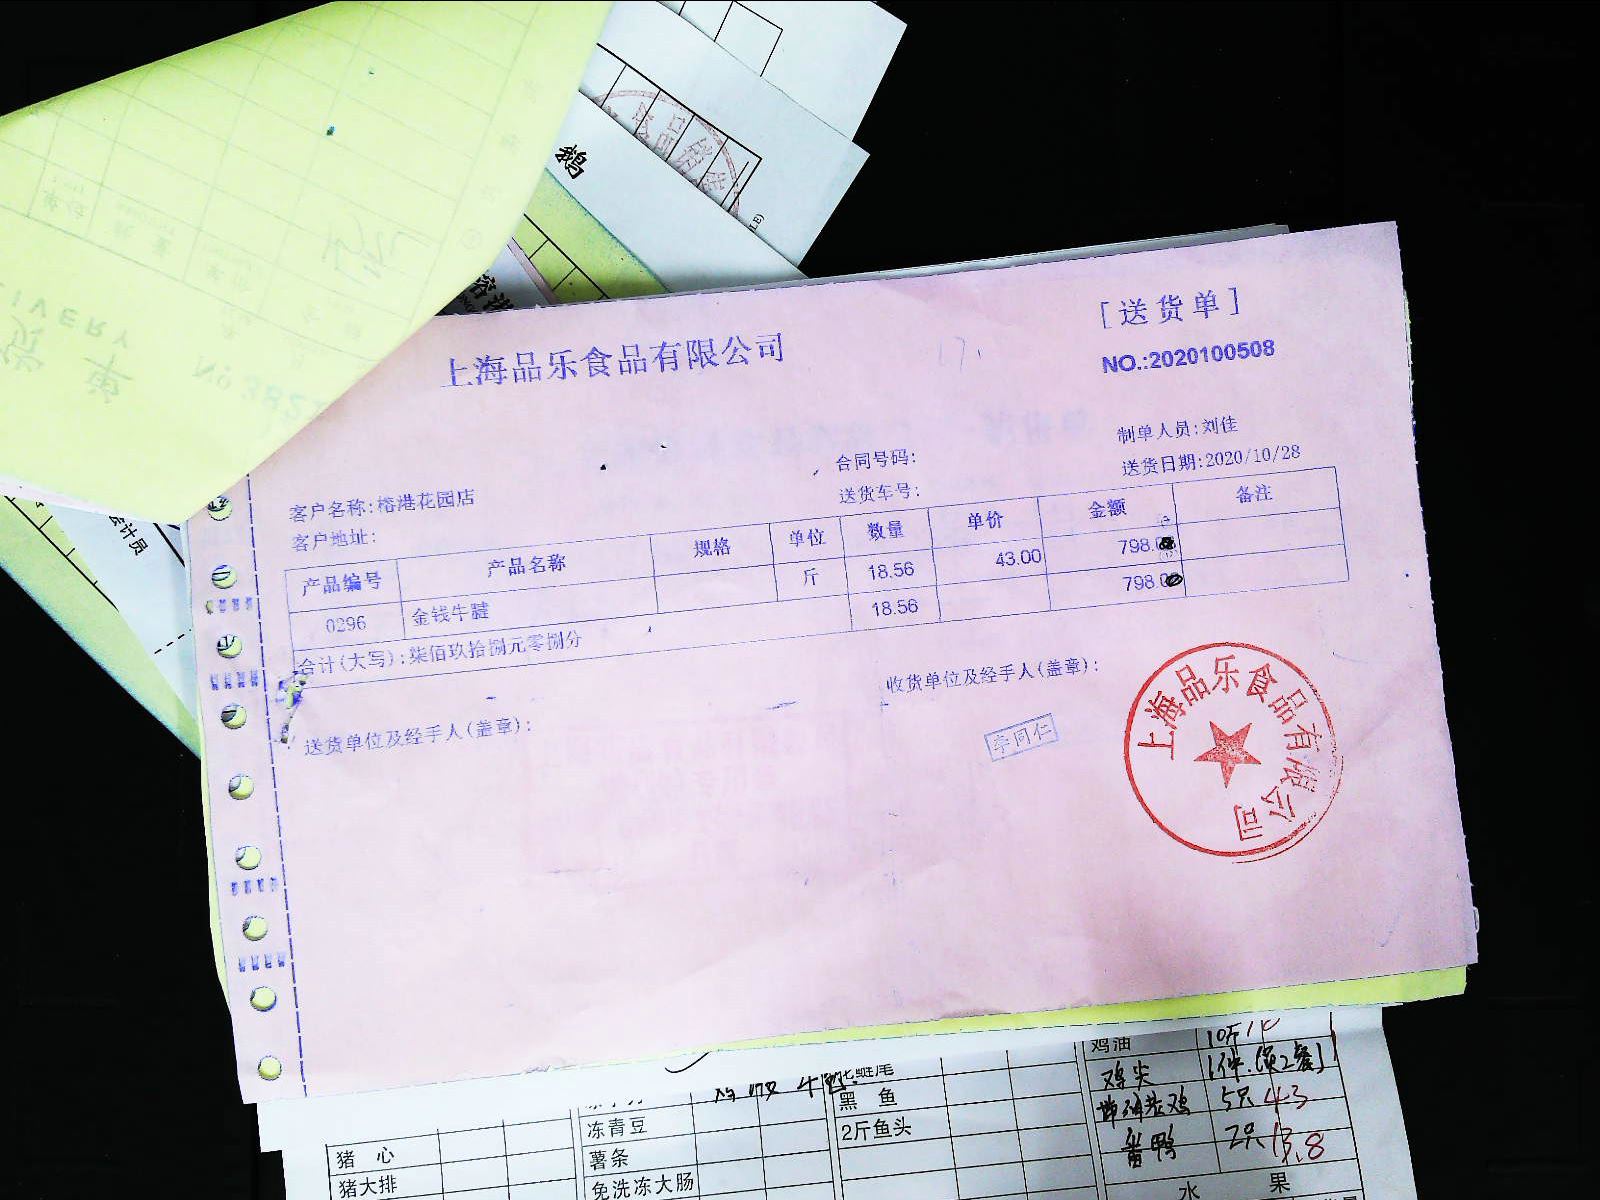 鹅
会计员
上海品乐食品有限公司
[送货单]
NO.:2020100508
17.
制单人员:刘佳
合同号码:
送货日期:2020/10/28
客户名称:榕港花园店
送货车号:
客户地址:
产品编号 产品名称 规格 单位 数量 单价 金额 备注
0296 金钱牛腱 斤 18.56 43.00 798.
18.56 798.
合计(大写):柒佰玖拾捌元零捌分
收货单位及经手人(盖章):
送货单位及经手人(盖章):
李同仁
上海品乐食品有限公司
鸡油 10斤
鸡尖 1件
黑 鱼 5只 43
冻青豆 2斤鱼头 2只 13.8
猪 心 薯条
猪大排 免洗冻大肠 水 果